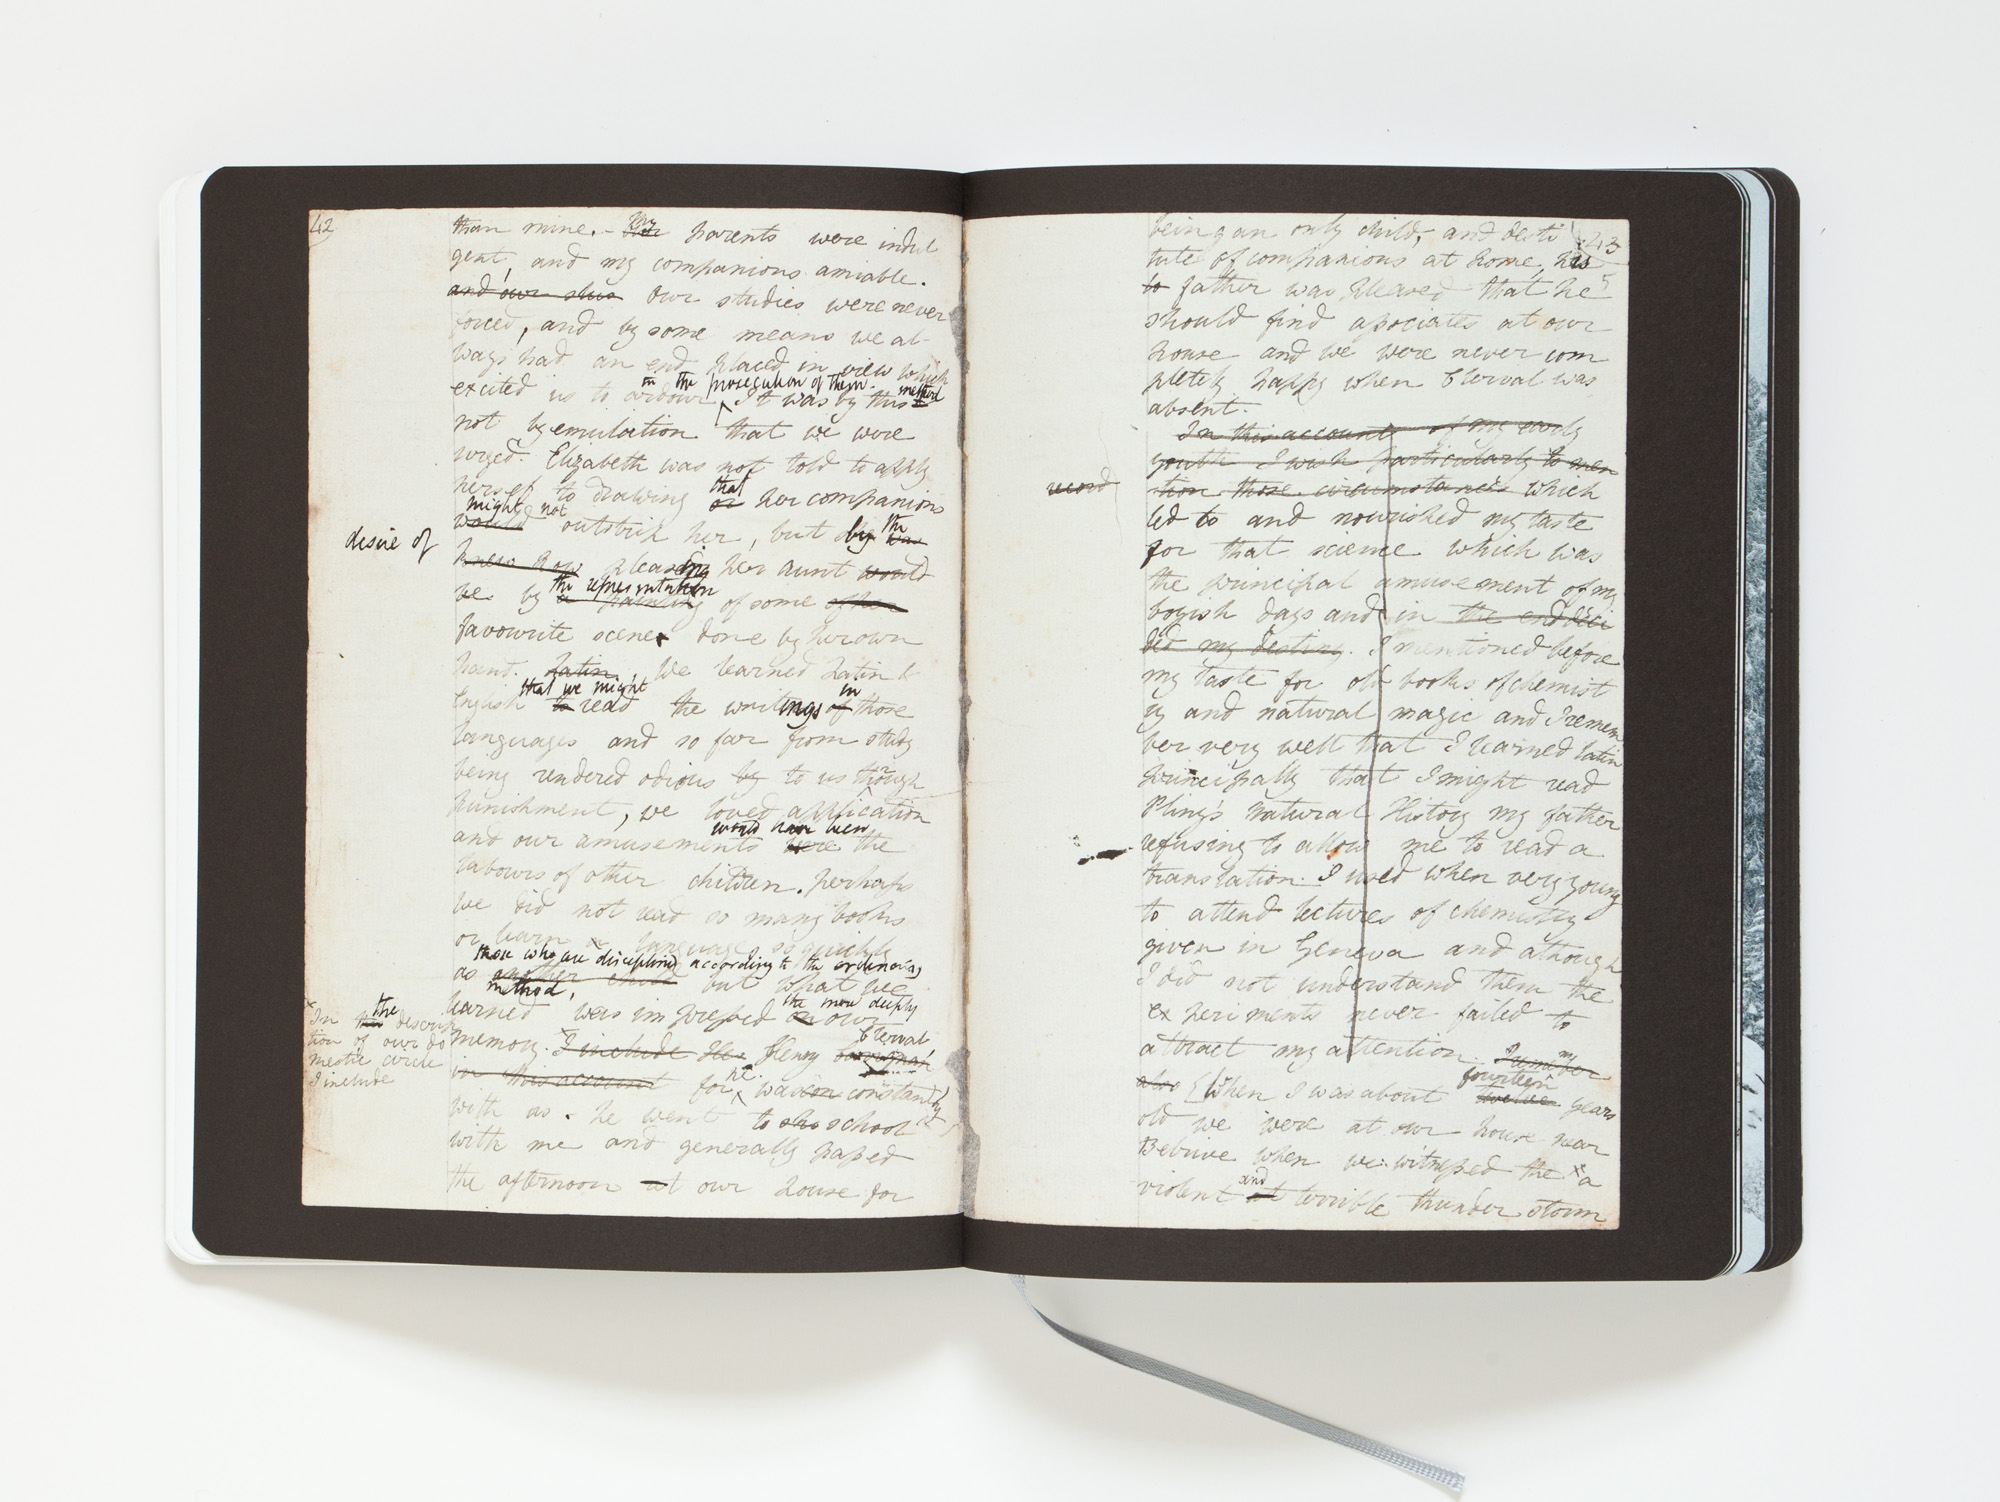 42
than mine. - My parents were indul
gent, and my companions amiable.
and our stu Our studies were never
forced, and by some means we al-
ways had an end placed in view which
in the prosecution of them. method
excited us to ardour It was by this
not by emulation that we were
urged. Elizabeth was not told to apply
herself to drawing that or her companions
might not
would outstrip her, but by the was
desire of
knew how pleasing her aunt would
the representation
be by a painting of some other
favourite scenes done by her own
hand. Latin We learned Latin &
that we might in
English to read the writings of those
languages and so far from study
being rendered odious by to us through
punishment, we loved application
would have been
and our amusements were the
labours of other children. Perhaps
we did not read so many books
or learn a language so quickly
those who are disciplined according to the ordinary
as another child but what we
method, the more deeply
learned was impressed on our
Clerval
memory. I include Henry
in this account for he was constantly
In the this descrip
tion of our do
mestic circle
I include
with us. he went to sho school
with me and generally passed
the afternoon at our house for
43
being an only child, and desti
tute of companions at home, his
to father was pleased that he
should find associates at our
house and we were never com
pletely happy when Clerval was
absent.
In this account of my early
youth I wish particularly to men
tion those circumstances which
record
led to and nourished my taste
for that science which was
the principal amusement of my
boyish days and in the end deci
ded my destiny. I mentioned before
my taste for old books of chemist
ry and natural magic and I remem
ber very well that I learned latin
principally that I might read
Pliny's Natural History my father
refusing to allow me to read a
translation. I used when very young
to attend lectures of chemistry
given in Geneva and although
I did not understand them the
experiments never failed to
attract my attention.
also When I was about fourteen twelve years
old we were at our house near
Belrive when we witnessed the a
violent and terrible thunder storm